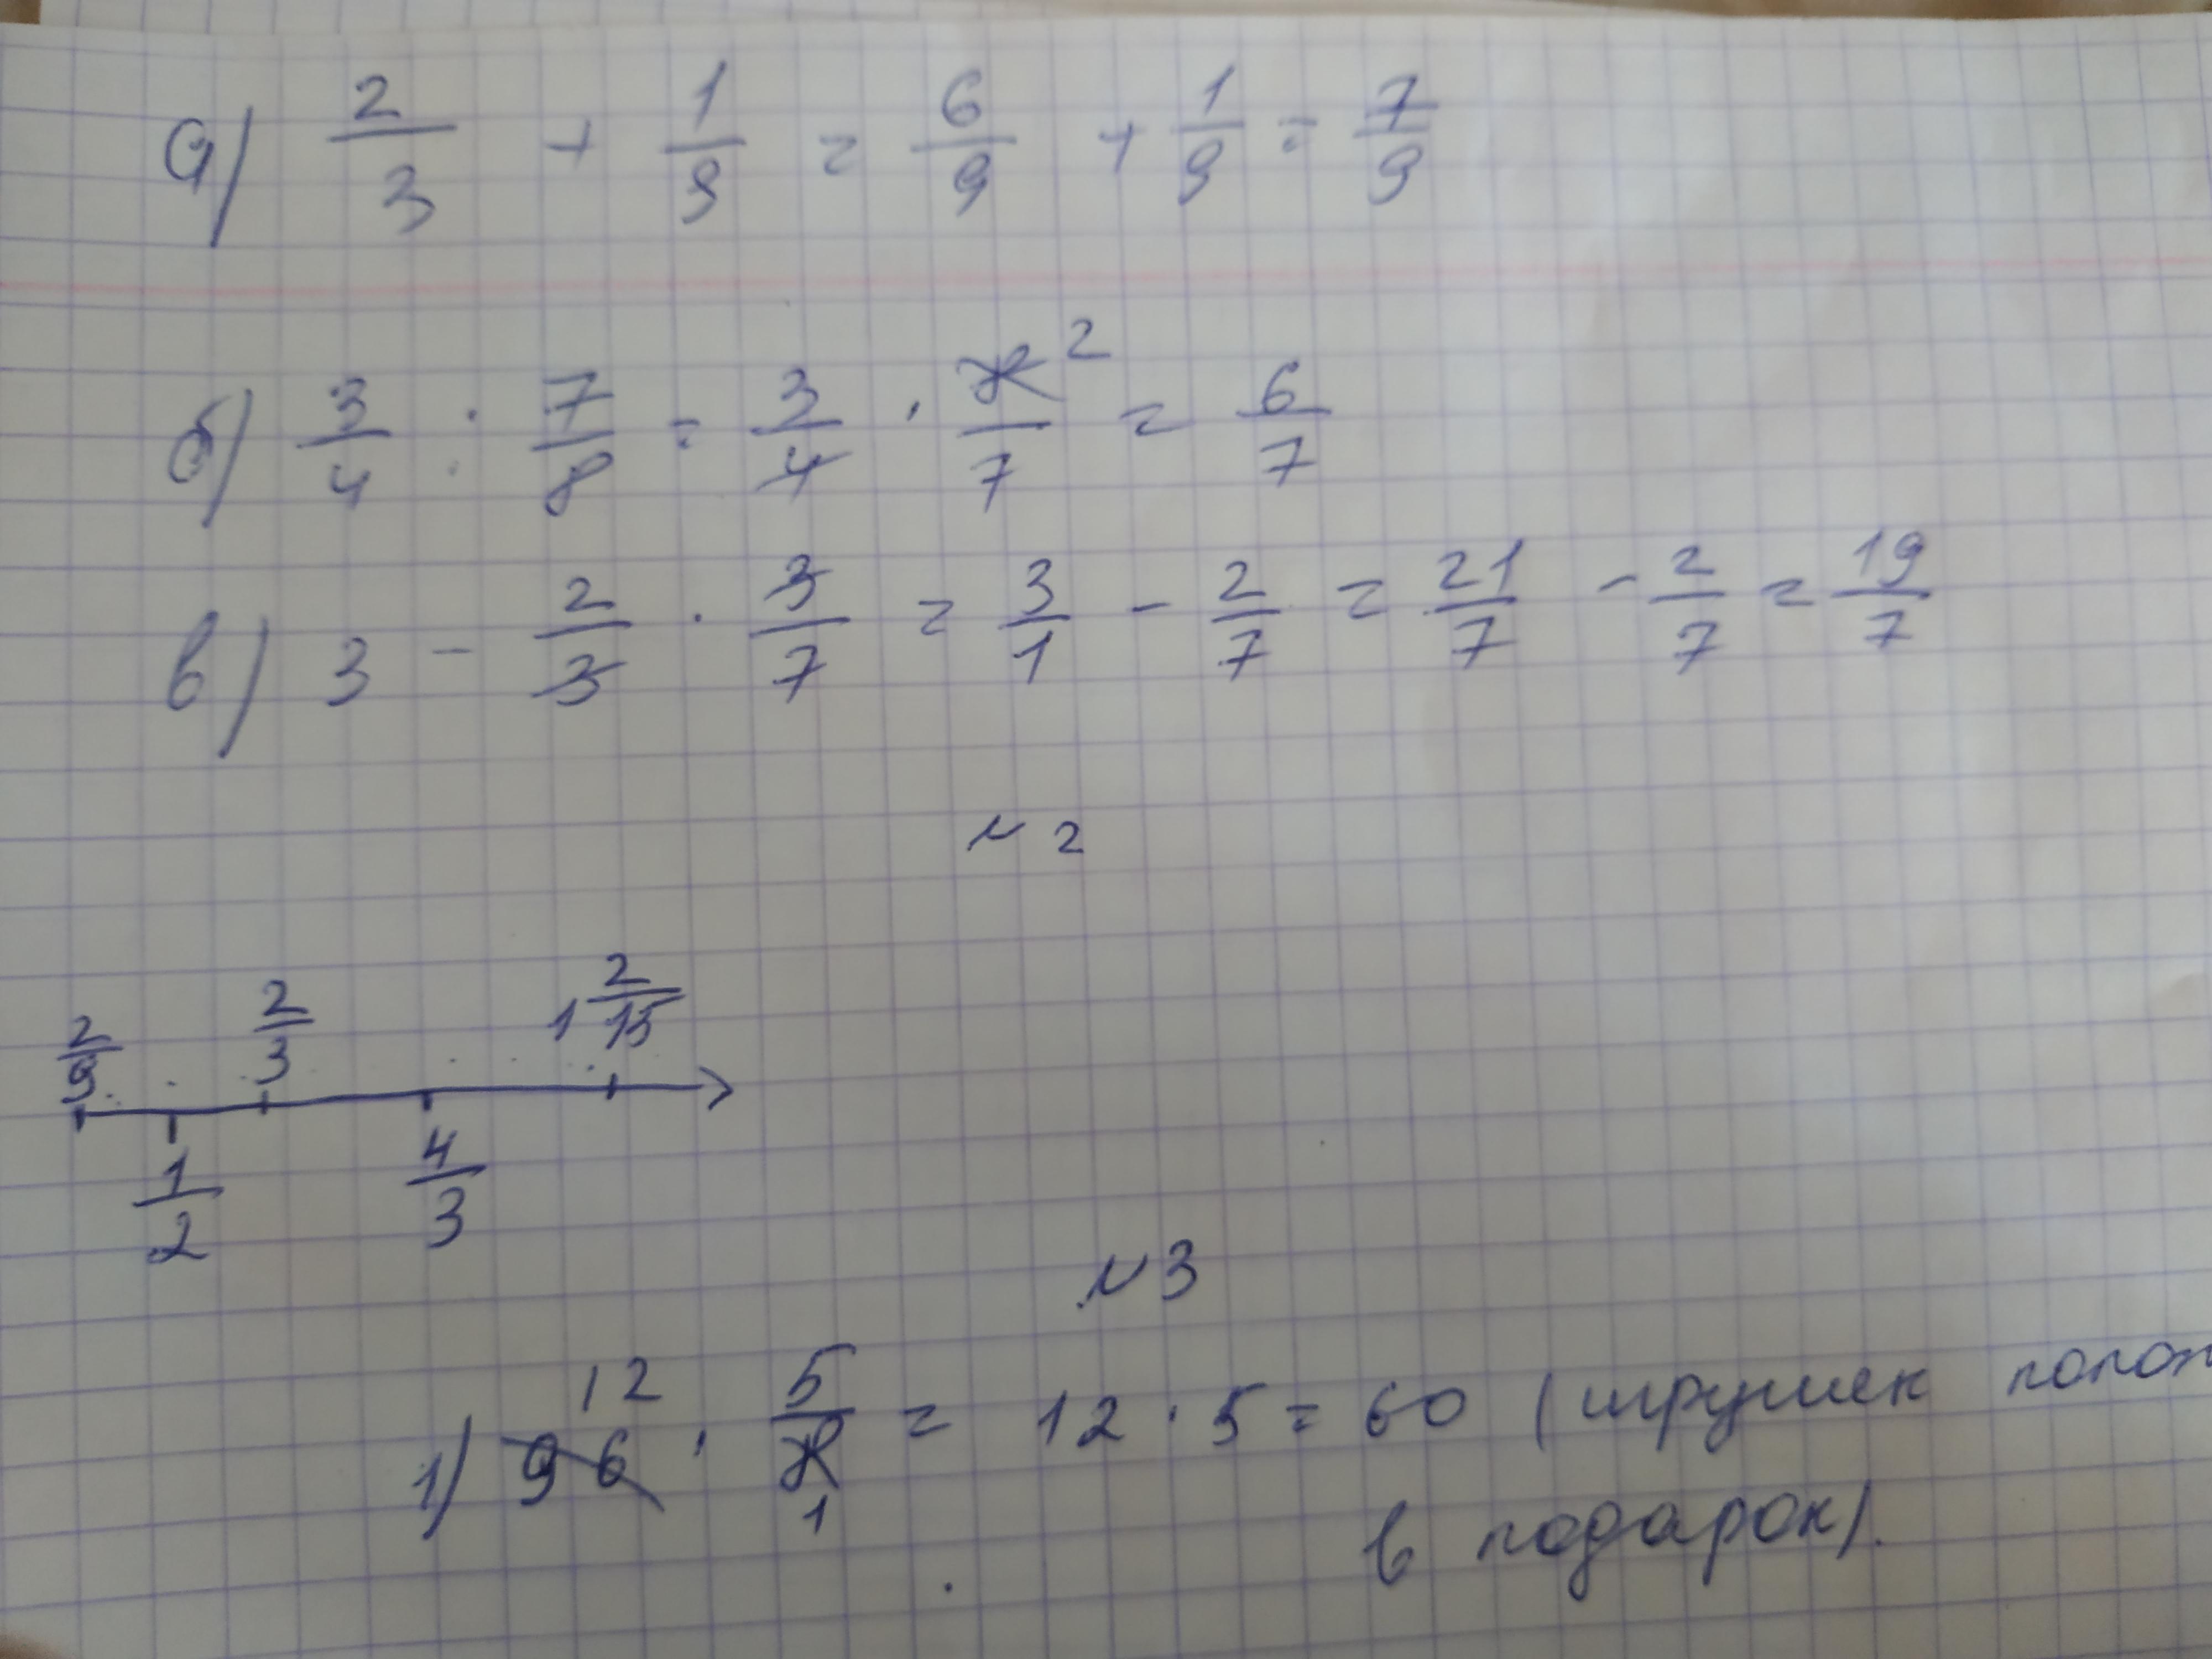 а) 2/3 + 1/9 = 6/9 + 1/9 = 7/9
б) 3/4 : 7/8 = 3/4 · 8/7 2 = 6/7
в) 3 - 2/3 · 3/7 = 3/1 - 2/7 = 21/7 - 2/7 = 19/7
№2
2/9 2/3 1 2/15
1/2 4/3
№3
12
1) 96 · 5/8 = 12 · 5 = 60 (игрушек
1
в подарок).